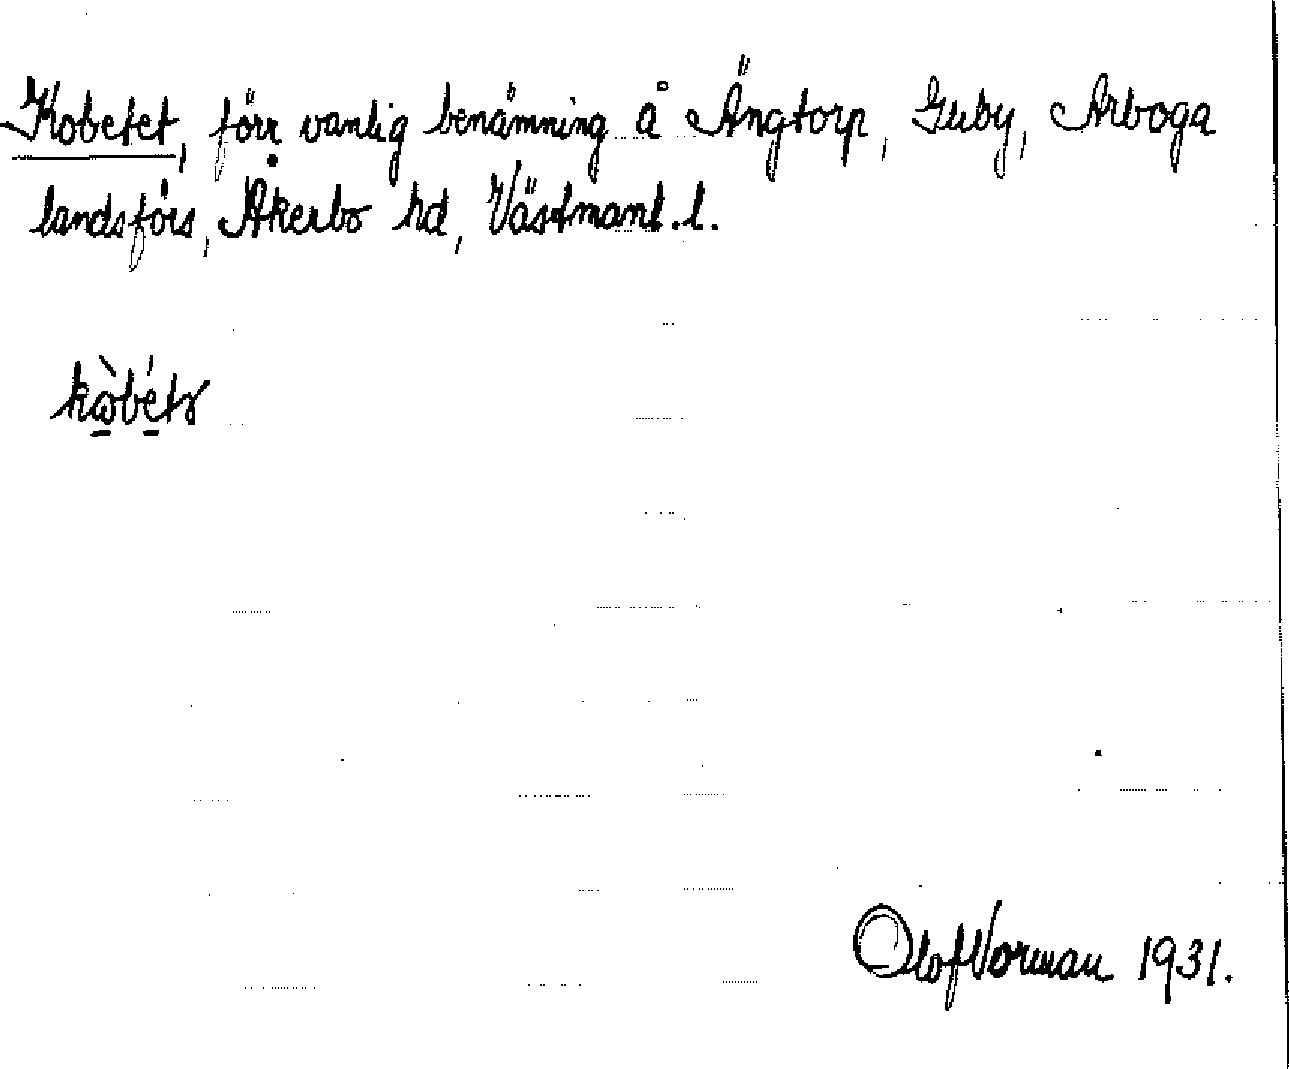 Kobetet, förr vanlig benämning å Ängtorp, Guby, Arboga
landsförs, Åkerbo hd, Västmanl. l.
Olof Norman 1931.